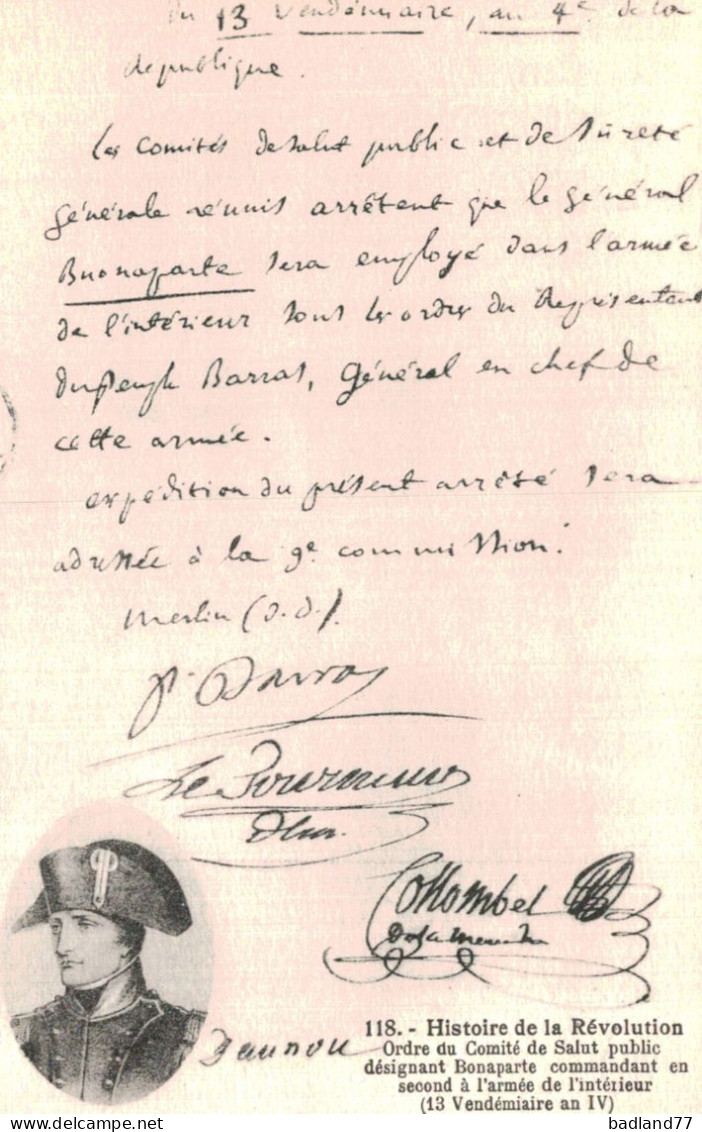 du 13 Vendémiaire, an 4e de la
République.
Les Comités de Salut public et de Sûreté
générale réunis arrêtent que le général
Buonaparte sera employé dans l'armée
de l'intérieur sous les ordres du Représentant
du peuple Barras, Général en chef de
cette armée.
expédition du présent arrêté sera
adressée à la 9e commission.
Merlin (d.d.).
P. Barras
Le Tourneur
Collombel
De la Meurthe
Daunou
118. - Histoire de la Révolution
Ordre du Comité de Salut public
désignant Bonaparte commandant en
second à l'armée de l'intérieur
(13 Vendémiaire an IV)
badland77